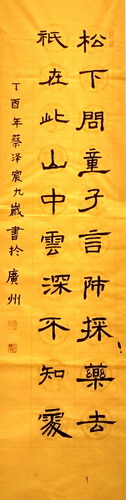 松下問童子言师採藥去
衹在此山中雲深不知處
丁酉年蔡泽宸九歲書於廣州